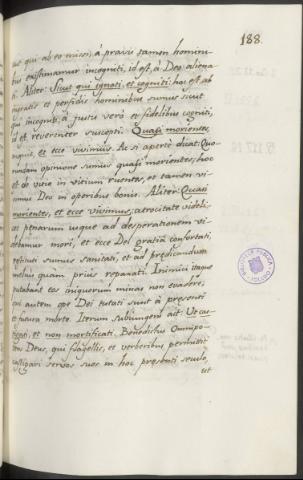 188.
que qui ab eo missi, à pravis tamen homini-
bus existimamur incogniti, id est, à Deo aliena-
ti. Aliter: Sicut qui ignoti, et cogniti: hoc est ab
ingratis et perfidis hominibus sumus sicut
qui incogniti, à justis verò et fidelibus cogniti,
et reverenter suscepti. Quasi morientes,
inquit, et ecce vivimus. Ac si aperte dicat: Quo-
rumdam opinione sumus quasi morientes; hoc
est de vitio in vitium ruentes, et tamen vi-
vimus Deo in operibus bonis. Aliter: Quasi
morientes, et ecce vivimus; atrocitate videli-
cet penarum usque ad desperationem vi-
debamur mori, et ecce Dei gratiâ confortati,
restituti sumus sanitati, et ad predicandum
melius quam prius reparati. Inimici itaque
putabant eos iniquorum minas non evadere;
qui autem ope Dei tutati sunt à presenti
et futura morte. Iterum subjungens ait
igati, et non mortificati. Benedictus Omnipo-
tens Deus, qui flagellis, et verberibus permittit
castigari servos suos in hoc presenti seculo,
ut